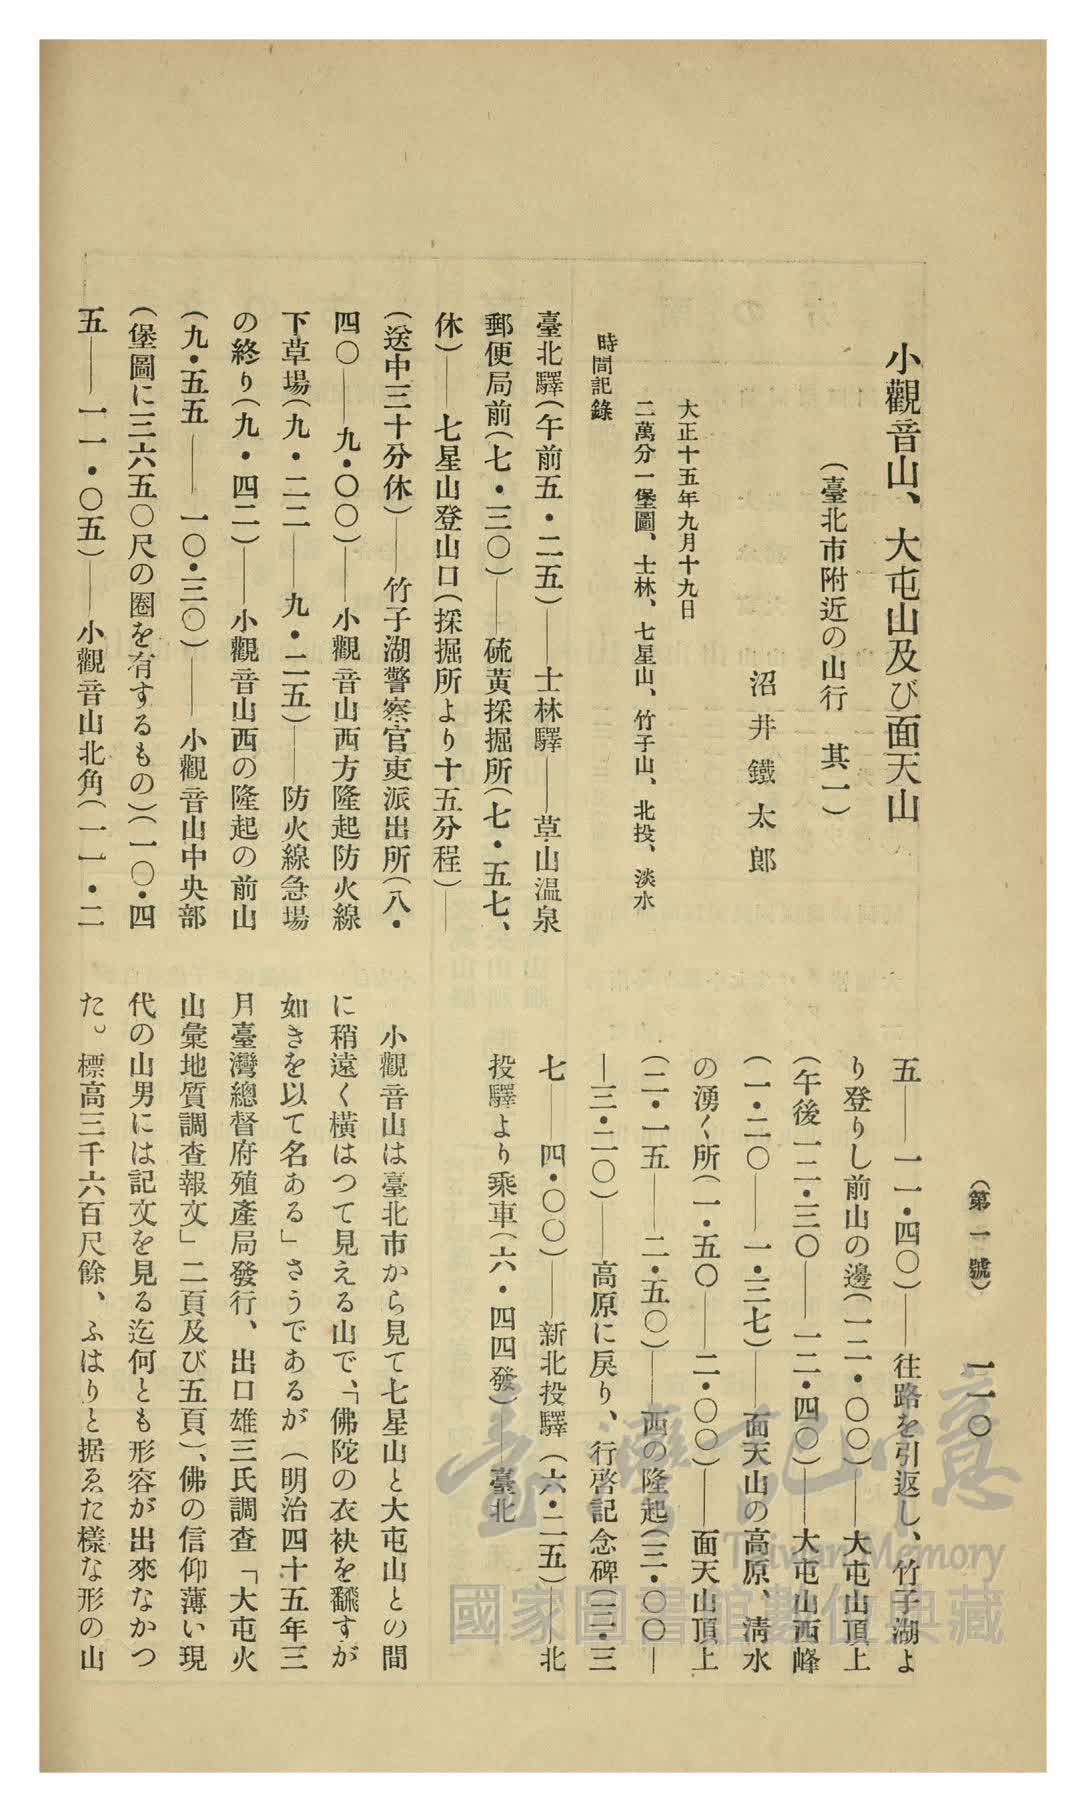 (第一號)　一一〇
小觀音山、大屯山及び面天山
(臺北市附近の山行　其一)
沼井鐵太郎
大正十五年九月十九日
二萬分一堡圖、士林、七星山、竹子山、北投、淡水
時間記錄
臺北驛(午前五・二五)――士林驛――草山溫泉
郵便局前(七・三〇)――硫黃採掘所(七・五七、
休)――七星山登山口(採掘所より十五分程)――
(送中三十分休)――竹子湖警察官吏派出所(八・
四〇――九・〇〇)――小觀音山西方隆起防火線
下草場(九・二二――九・二五)――防火線急場
の終り(九・四二)――小觀音山西の隆起の前山
(九・五五――一〇・三〇)――小觀音山中央部
(堡圖に三六五〇尺の圈を有するもの)(一〇・四
五――一一・〇五)――小觀音山北角(一一・二
五――一一・四〇)――往路を引返し、竹子湖よ
り登りし前山の邊(一二・〇〇)――大屯山頂上
(午後一二・三〇――一二・四〇)――大屯山西峰
(一・二〇――一・三七)――面天山の高原、清水
の湧く所(一・五〇――二・〇〇)――面天山頂上
(二・一五――二・五〇)――西の隆起(三・〇〇―
―三・二〇)――高原に戾り、行啓記念碑(三・三
七――四・〇〇)――新北投驛(六・二五)――北
投驛より乘車(六・四四發)――臺北
小觀音山は臺北市から見て七星山と大屯山との間
に稍遠く橫はつて見える山で、「佛陀の衣袂を飜すが
如きを以て名ある」さうであるが(明治四十五年三
月臺灣總督府殖產局發行、出口雄三氏調查「大屯火
山彙地質調查報文」二頁及び五頁)、佛の信仰薄い現
代の山男には記文を見る迄何とも形容が出來なかつ
た。標高三千六百尺餘、ふはりと据ゑた樣な形の山
臺灣記憶
Taiwan Memory
國家圖書館數位典藏